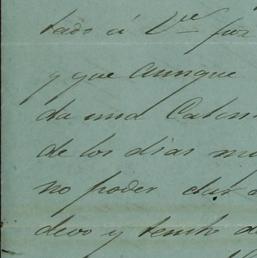 tado á Vce por
y que aunque
da una Calen
de los dias mi
no poder dir
devo y tenito d